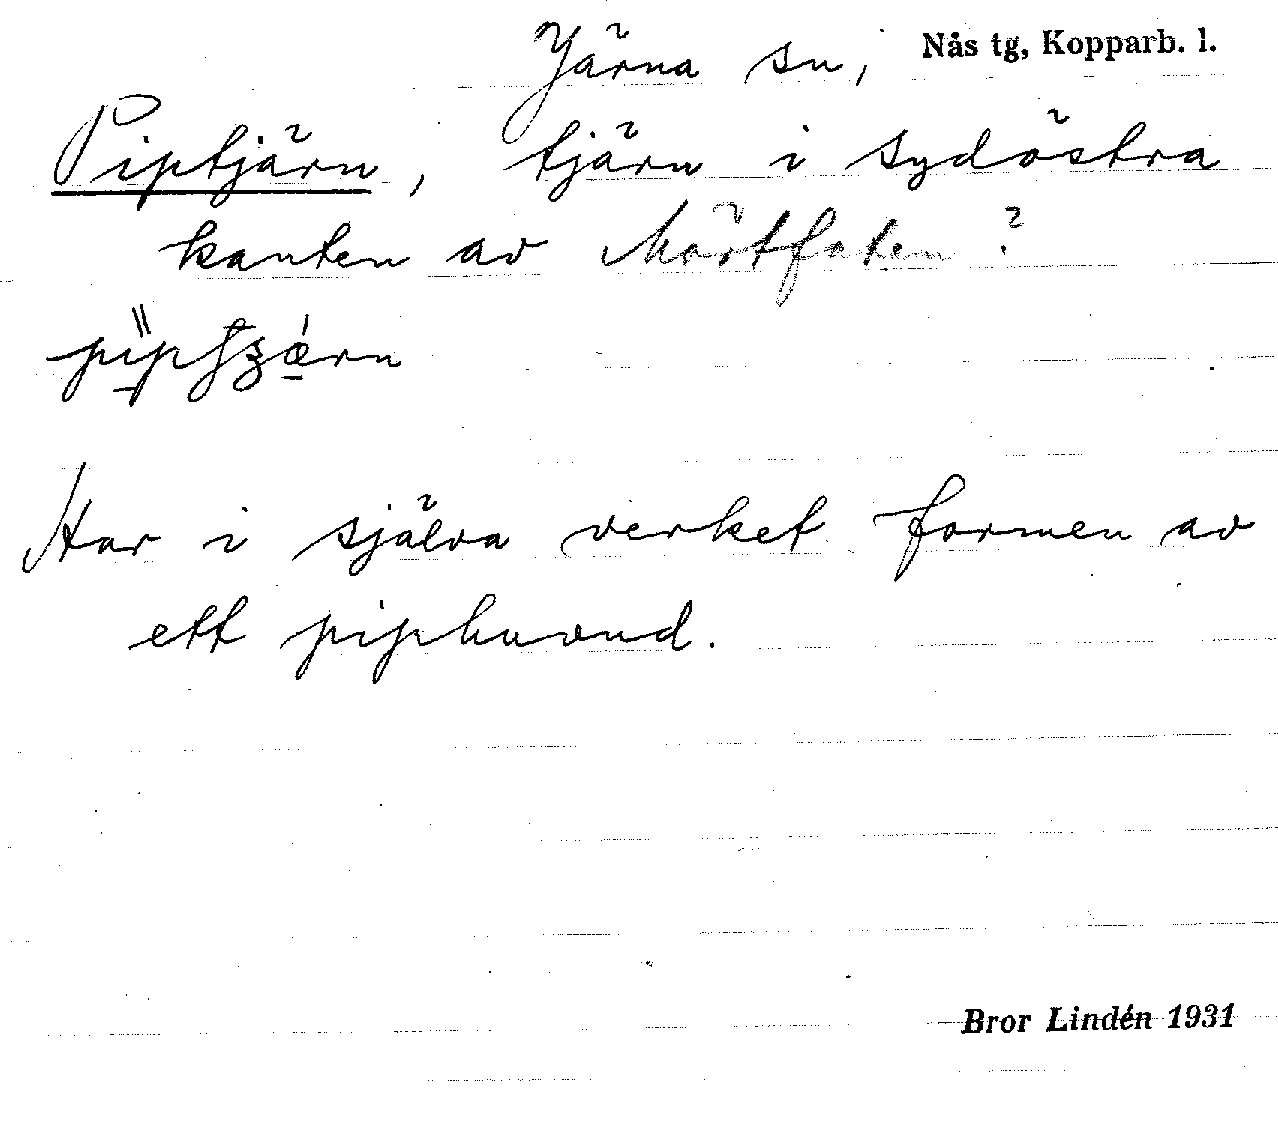 Järna sn, Nås tg, Kopparb. l.
Piptjärn, tjärn i sydöstra
kanten av Mörtfaten ?
Har i själva verket formen av
ett piphuvud.
Bror Lindén 1931